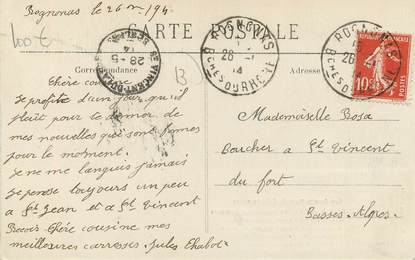 Rognonas le 26 m 194
100 t
CARTE POSTALE
ROGNONAS
26
14
BCHES-DU-RHONE
ROGNONAS
26
BCHES-DU-RHONE
10c
ST VINCENT-DU-FORT
28-5
14
BASSES-ALPES
Correspondance
Adresse
B
Chère cousine
Je profite d'un jour qu'il
pleut pour te donner de
mes nouvelles que sont bonnes
pour le moment.
Je ne me languis jamais
Je pense toujours un peu
a St Jean et a St Vincent
Recois Chère cousine mes
meilleures caresses Jules Chabot
Mademoiselle Rosa
Boucher a St Vincent
du fort
Basses-Alpes